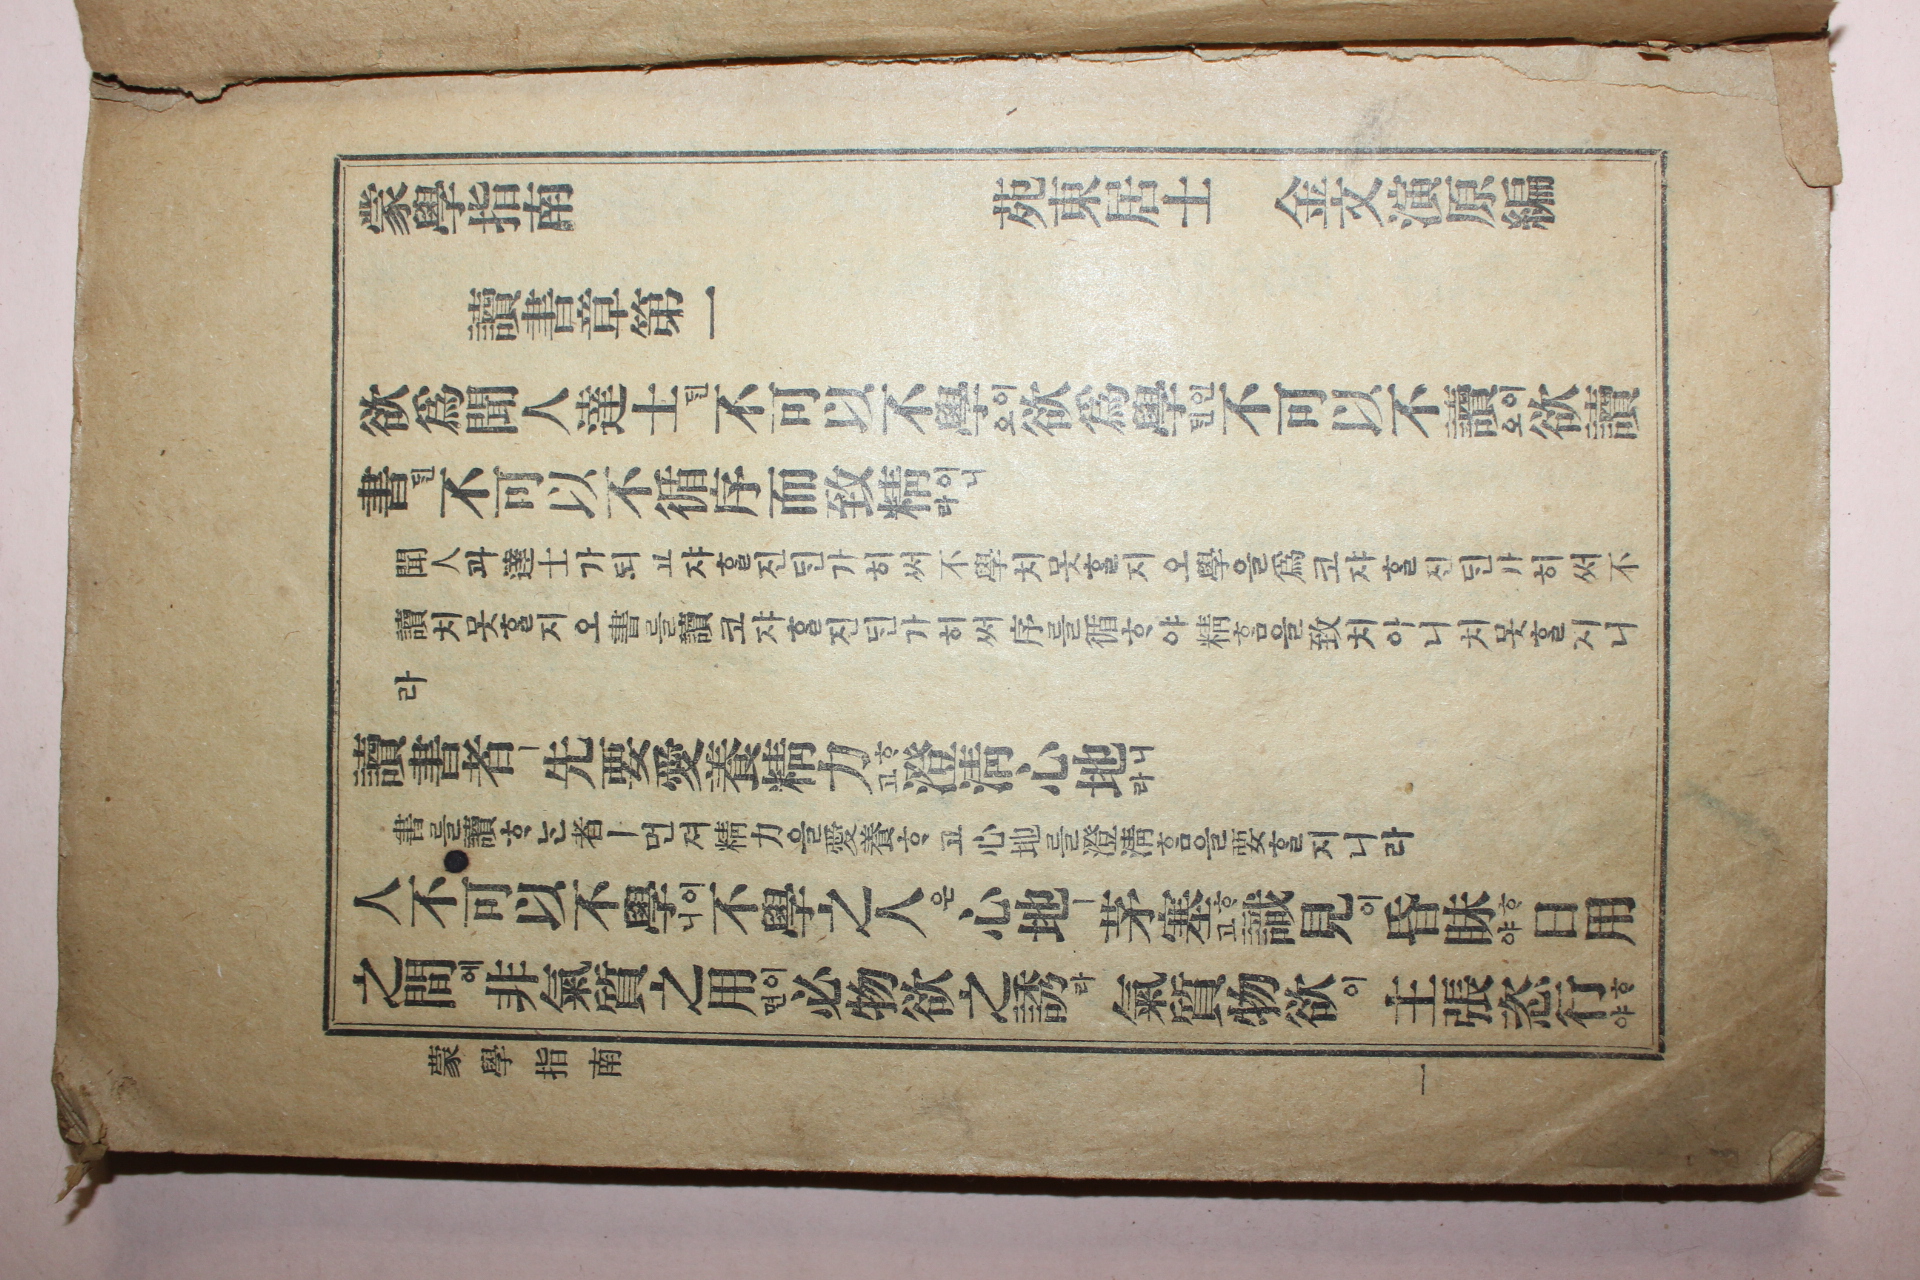 蒙學指南 苑東居士 金文演原編
讀書章第一
欲爲聞人達士ㄴ된不可以不學이오欲爲學인된不可以不讀이오欲讀
書ㄴ된不可以不循序而致精이니라
聞人과達士가되고쟈ᄒᆞᆯ진ᄃᆡᆫ가히써不學치못ᄒᆞᆯ지오學을爲코쟈ᄒᆞᆯ진ᄃᆡᆫ가히써不
讀치못ᄒᆞᆯ지오書를讀코쟈ᄒᆞᆯ진ᄃᆡᆫ가히써序를循ᄒᆞ야精ᄒᆞᆷ을致치아니치못ᄒᆞᆯ지니
라
讀書者ㅣ先要愛養精力ᄒᆞ고澄淸心地니라
書를讀ᄒᆞᄂᆞᆫ者ㅣ먼져精力을愛養ᄒᆞ고心地를澄淸ᄒᆞᆷ을要ᄒᆞᆯ지니라
人不可以不學이니不學之人은心地ㅣ茅塞ᄒᆞ고識見이昏昧ᄒᆞ야日用
之間에非氣質之用이면必物欲之誘라氣質物欲이主張恣行ᄒᆞ야
蒙學指南 一